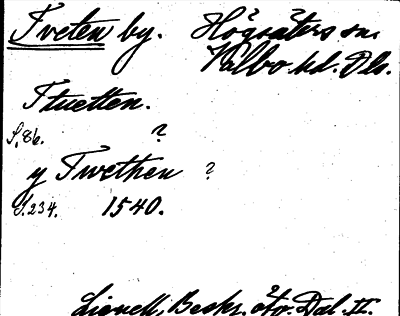 Tveten by. Högsäters sn.
Valbo hd. Dls.
Ttuetten.
S. 86. ?
y Twethen ?
S. 234. 1540.
Lignell, Beskr. öfv. Dal. II.